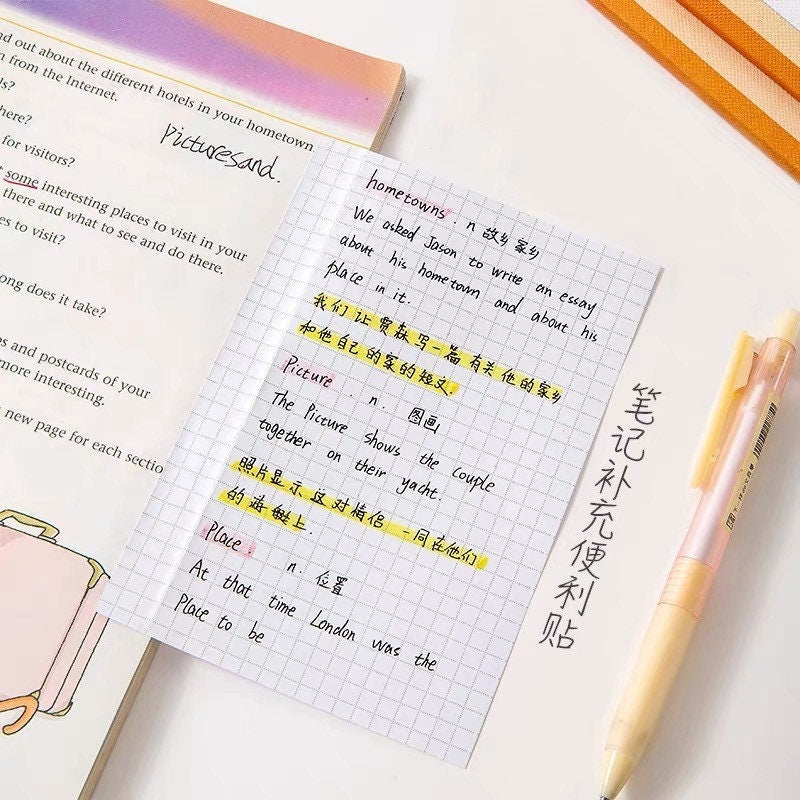 nd out about the different hotels in your hometown
n from the Internet.
ds?
here?
for visitors?
some interesting places to visit in your
there and what to see and do there.
es to visit?
ong does it take?
s and postcards of your
more interesting.
new page for each sectio
Picturesand.
hometowns. n 故乡家乡
We asked Jason to write an essay
about his hometown and about his
place in it.
我们让贾森写一篇有关他的家乡
和他自己的家的短文.
Picture. n. 图画
The Picture shows the couple
together on their yacht.
照片显示 对情侣一同在他们
的 上.
Place. n. 位置
At that time London was the
Place to be
笔记补充便利贴